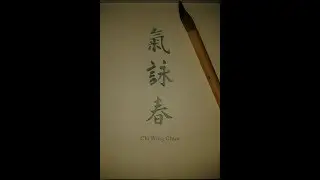 氣
詠
春
Chi Wing Chun